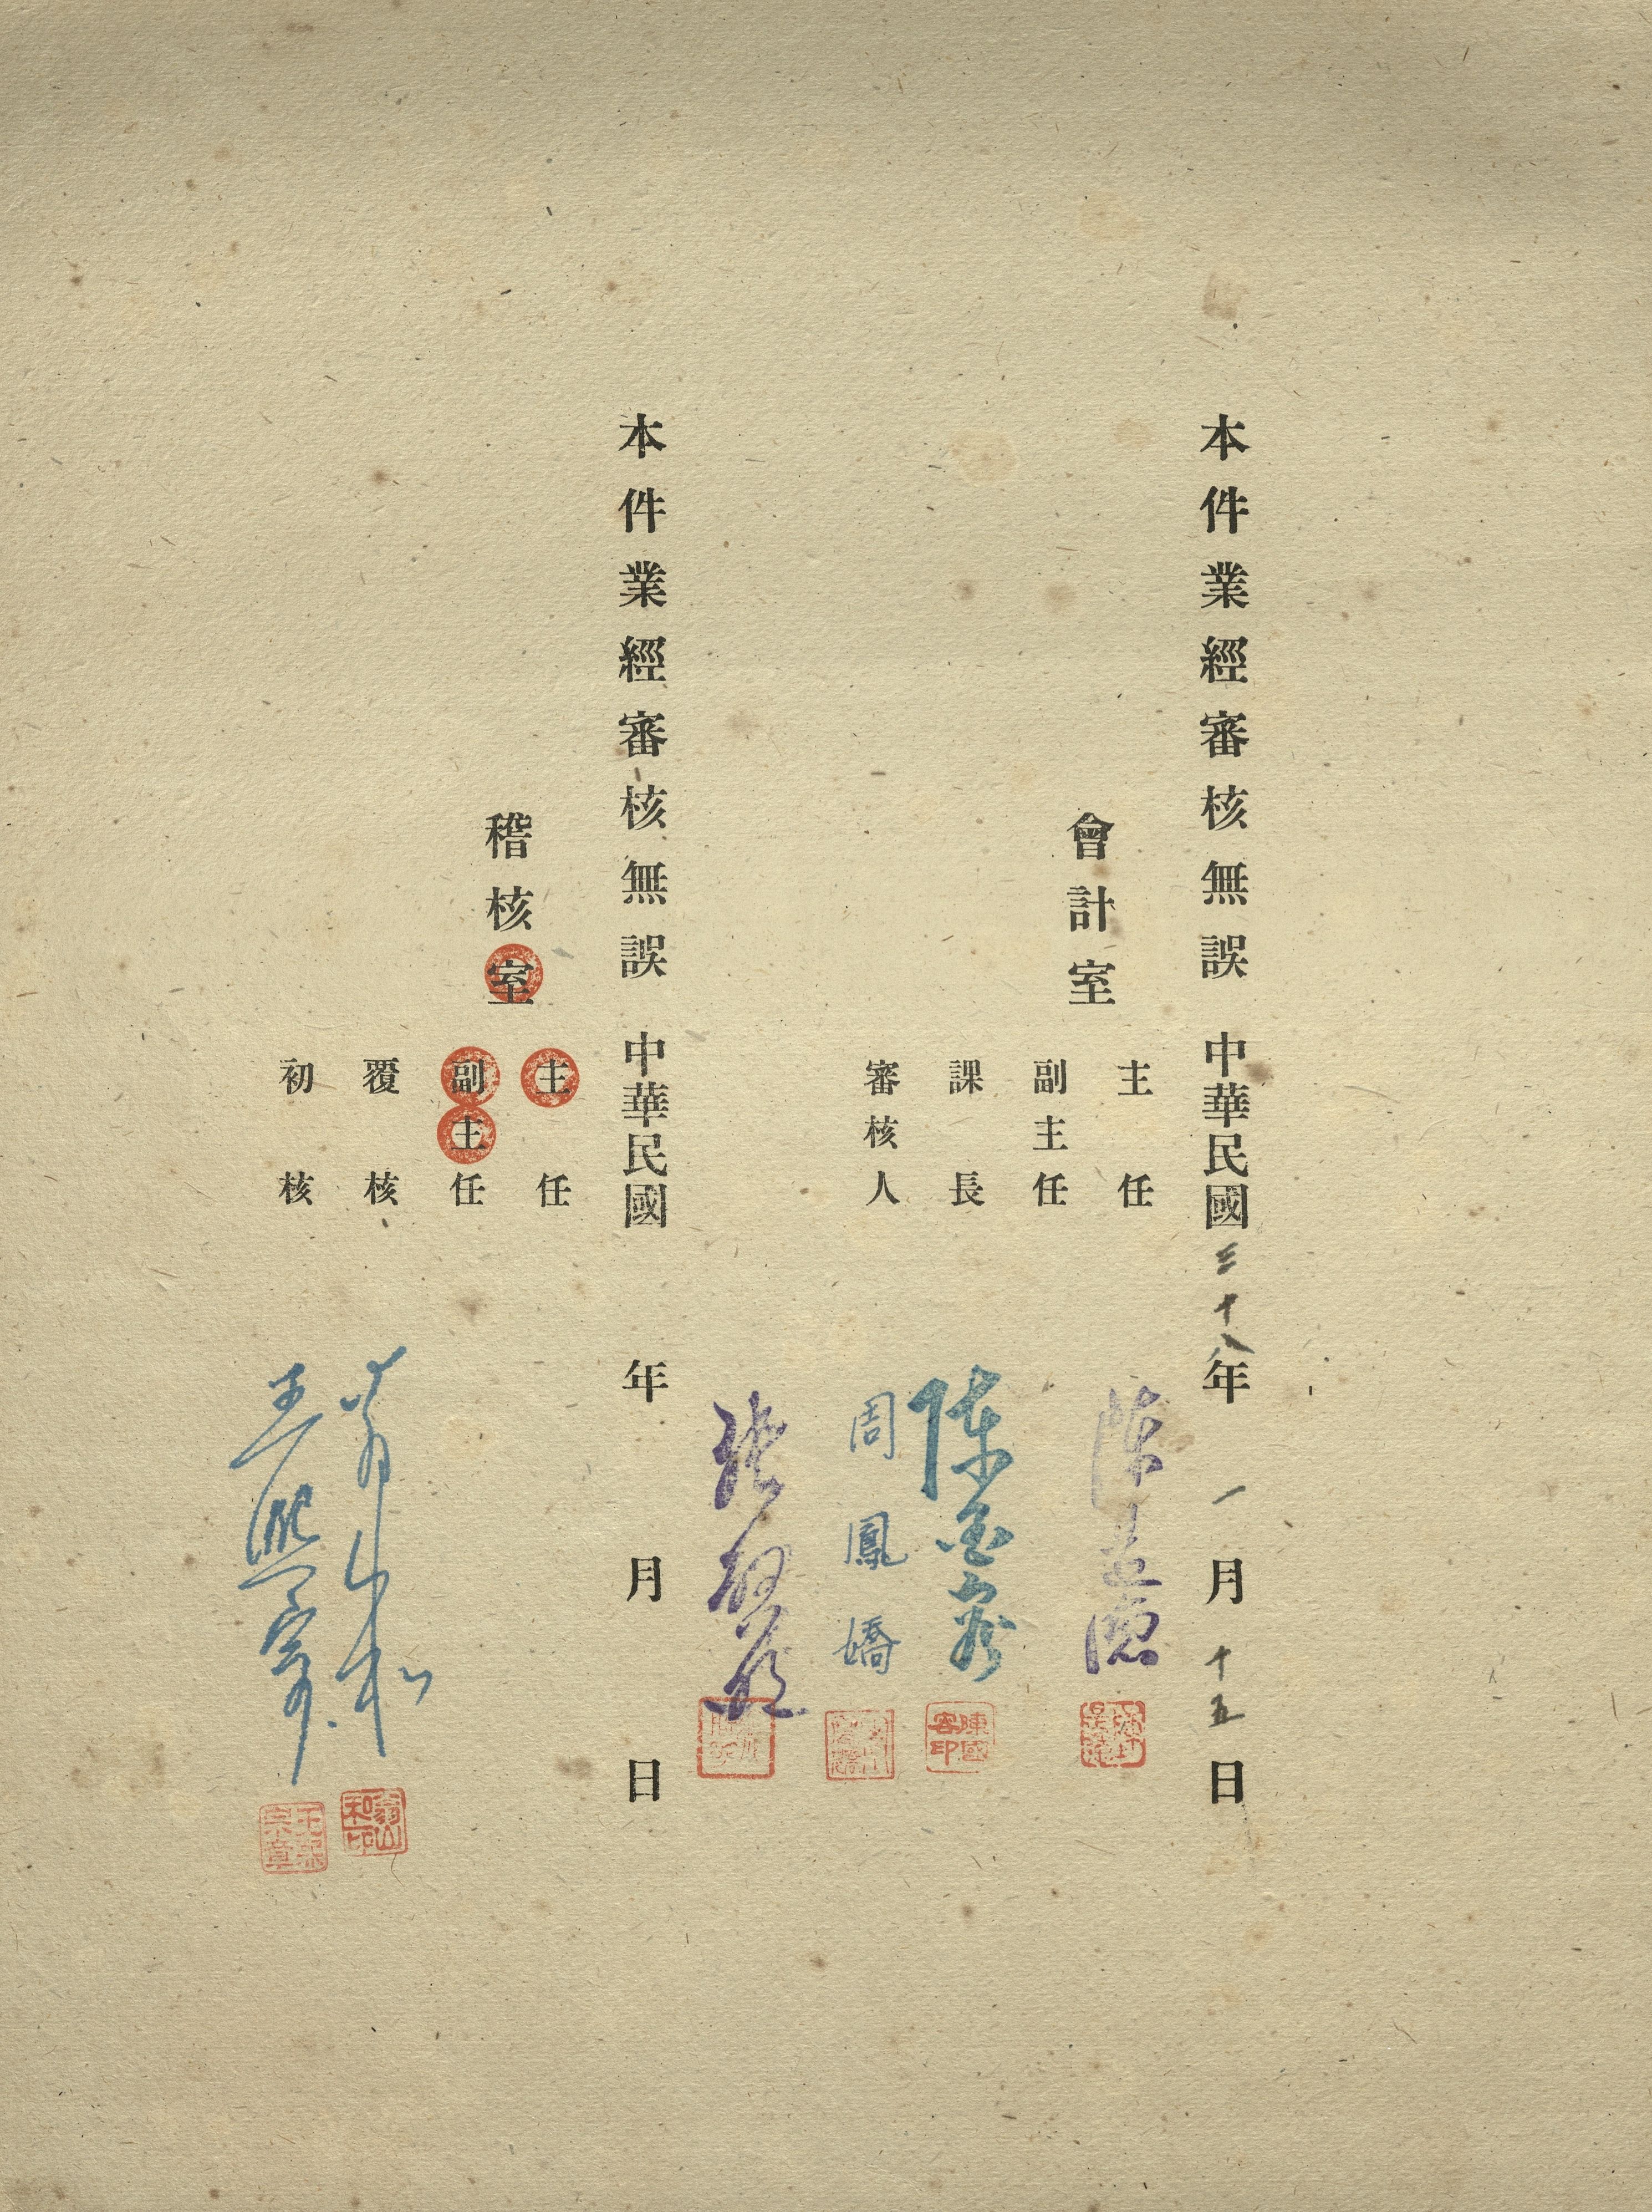 本件業經審核無誤 中華民國三十八年一月十五日
會計室
主任
副主任
課長 陳國容
審核人 周鳳嬌
陳國容印
本件業經審核無誤 中華民國 年 月 日
稽核室
主任
副主任
覆核 翁山和
初核 王熙宗
翁山和印
王熙宗章